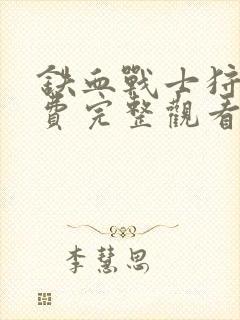 鉄血戰士狩
費完整觀看
李慧思